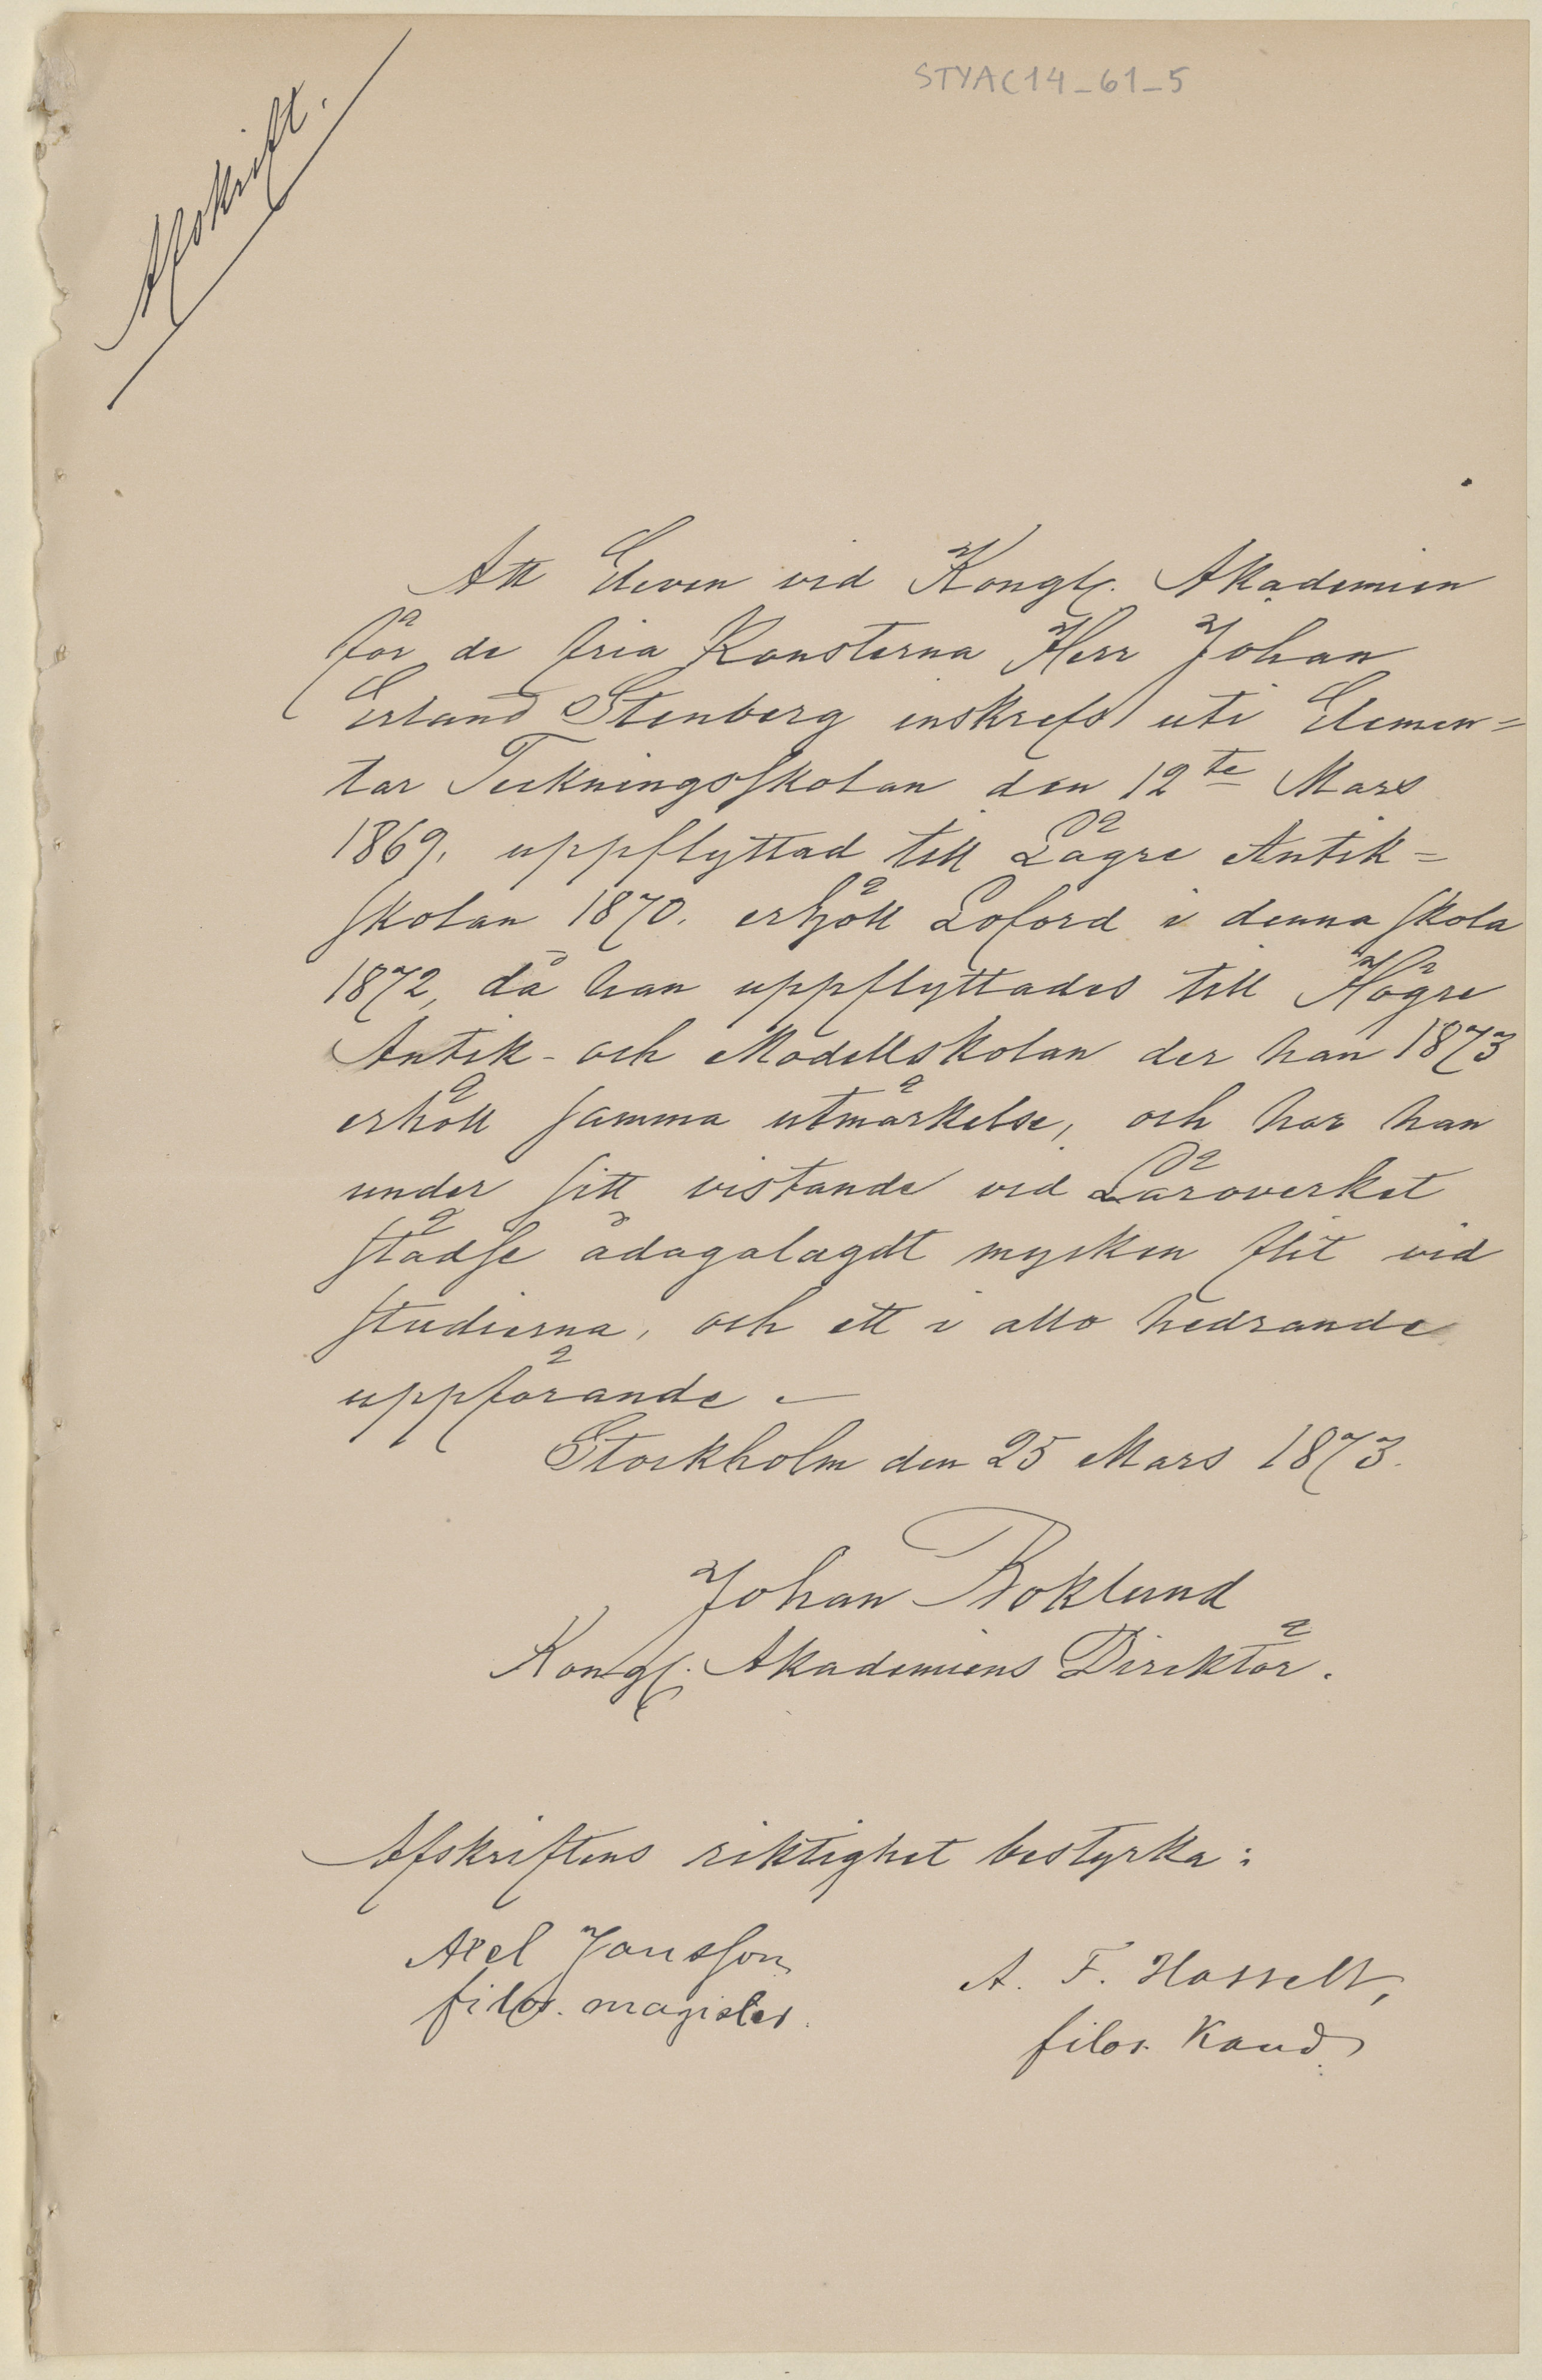 STYAC14_61_5
Afskrift.
Att Eleven vid Kongl. Akademien
för de fria Konsterna Herr Johan
Erland Stenberg inskrefs uti Elemen=
tar Teckningsskolan den 12te Mars
1869, uppflyttad till Lägre Antik=
skolan 1870. erhöll Loford i denna skola
1872, då han uppflyttades till Högre
Antik- och Modellskolan der han 1873
erhöll samma utmärkelse, och har han
under sitt vistande vid Läroverket
städse ådagalagdt mycken flit vid
studierna, och ett i allo hedrande
uppförande. —
Stockholm den 25 Mars 1873.
Johan Boklund
Kongl. Akademiens Direktör.
Afskriftens riktighet bestyrka:
Axel Jansson
filos. magister.
A. F. Hasselt,
filos. Kand.